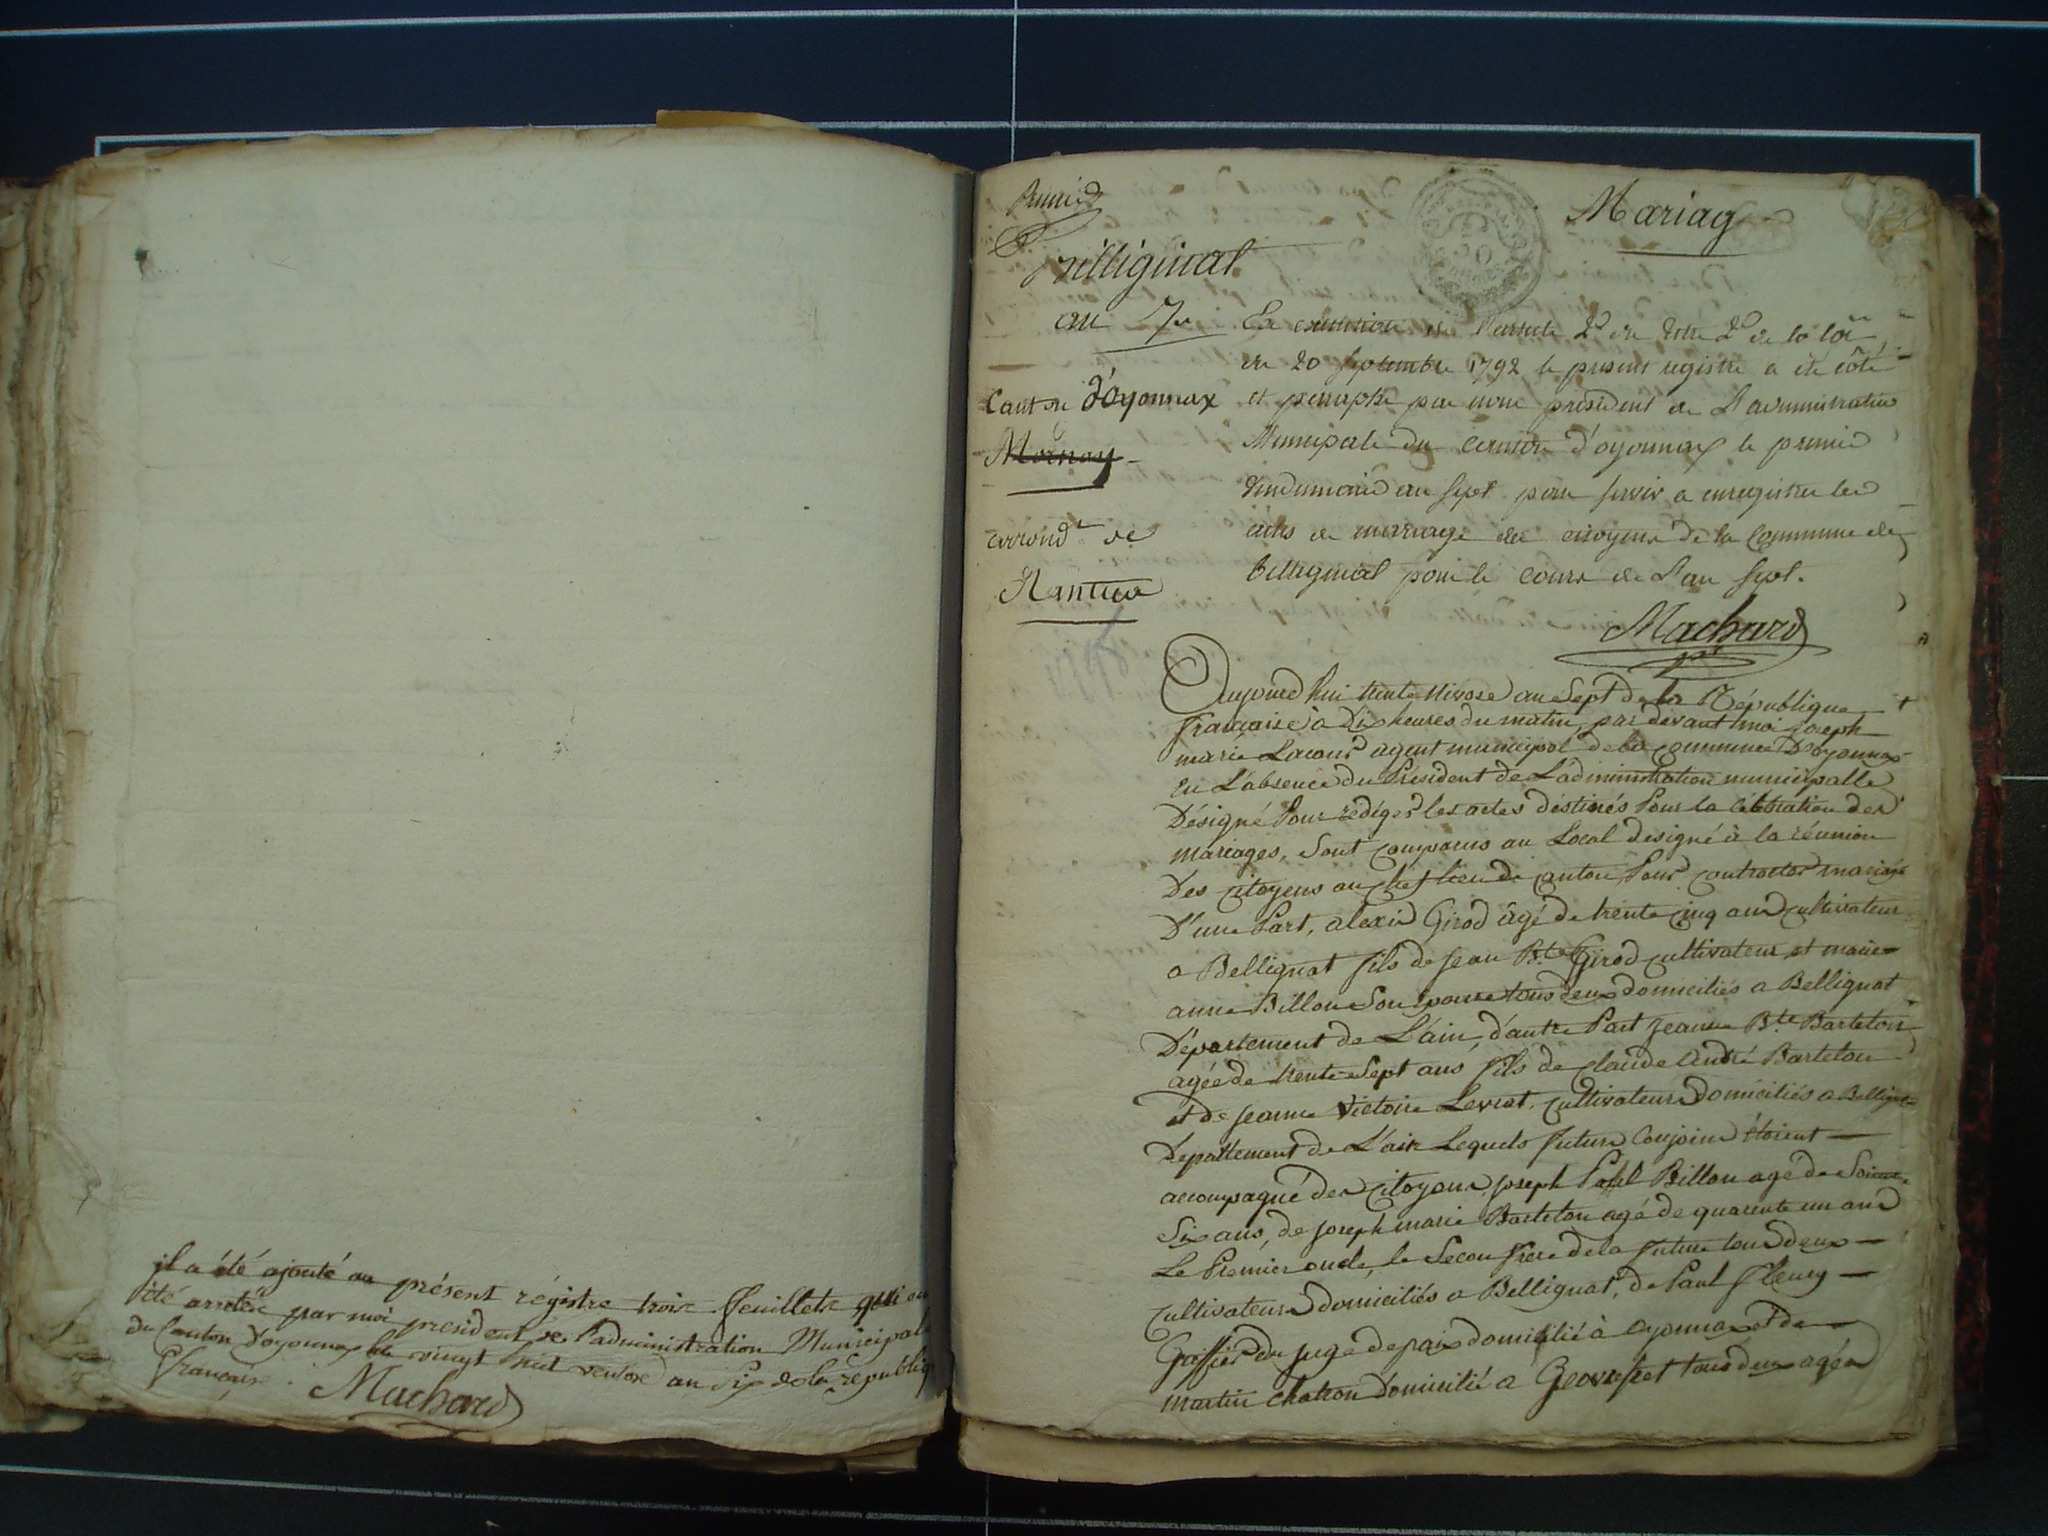 il a été ajouté au présent régistre trois feuillets qui ont
été arretés par moi president de l'administration Municipale
du Canton d'oyonnax le vingt huit ventose an six de la république
française.
Machard
Premier
Mariag
Billiginat
an 7e
Canton d'Oyonnax
Mornay
arrond.t de
Nantua
En execution de l'article 2e du titre 2e de la loi
du 20 septembre 1792 le present registre a été côté
et paraphé par nous président de L'administration
Municipale du canton d'oyonnax le premier
Vendemiaire an sept pour servir a enregistrer les
actes de mariage des citoyens de la Commune de
Billiginat pour le cours de L'an sept.
Machard
pt
Aujourd'hui trente Nivose an Sept de la République
française à Dix heures du matin, par devant moi joseph
marie Lacour agent municipal de la commune D'oyonnax
en L'absence du Président de L'administration municipalle
Désigné Pour rédiger les actes déstinés Pour la célébration des
mariages, Sont comparus au Local designé à la réunion
Des citoyens au chef lieu de canton, Pour contracter mariage
D'une Part, alexis Girod âgé de trente cinq ans cultivateur
a Bellignat fils de jean B.te Girod cultivateur et marie
anne Billon Son epouse tous deux domiciliés a Bellignat
Département de L'ain, d'autre Part jeanne B.te Barteton
agée de trente Sept ans fils de claude André Barteton
et de jeanne Victoire Levrat, cultivateurs Domiciliés a Bellignat
Departtement de L'ain Lequels futurs Conjoins étoient
accompagné des citoyens joseph Paul Billon agé de Soixante
Six ans, de joseph marie Barteton agé de quarente un ans
Le Premier oncle, le Secon frere de la future tous deux
cultivateurs domiciliés a Bellignat, de Paul fleury
Greffier du juge de paix domicilié à oyonnax et de
martin chatron Domicilié a Geovreisset tous deux agés